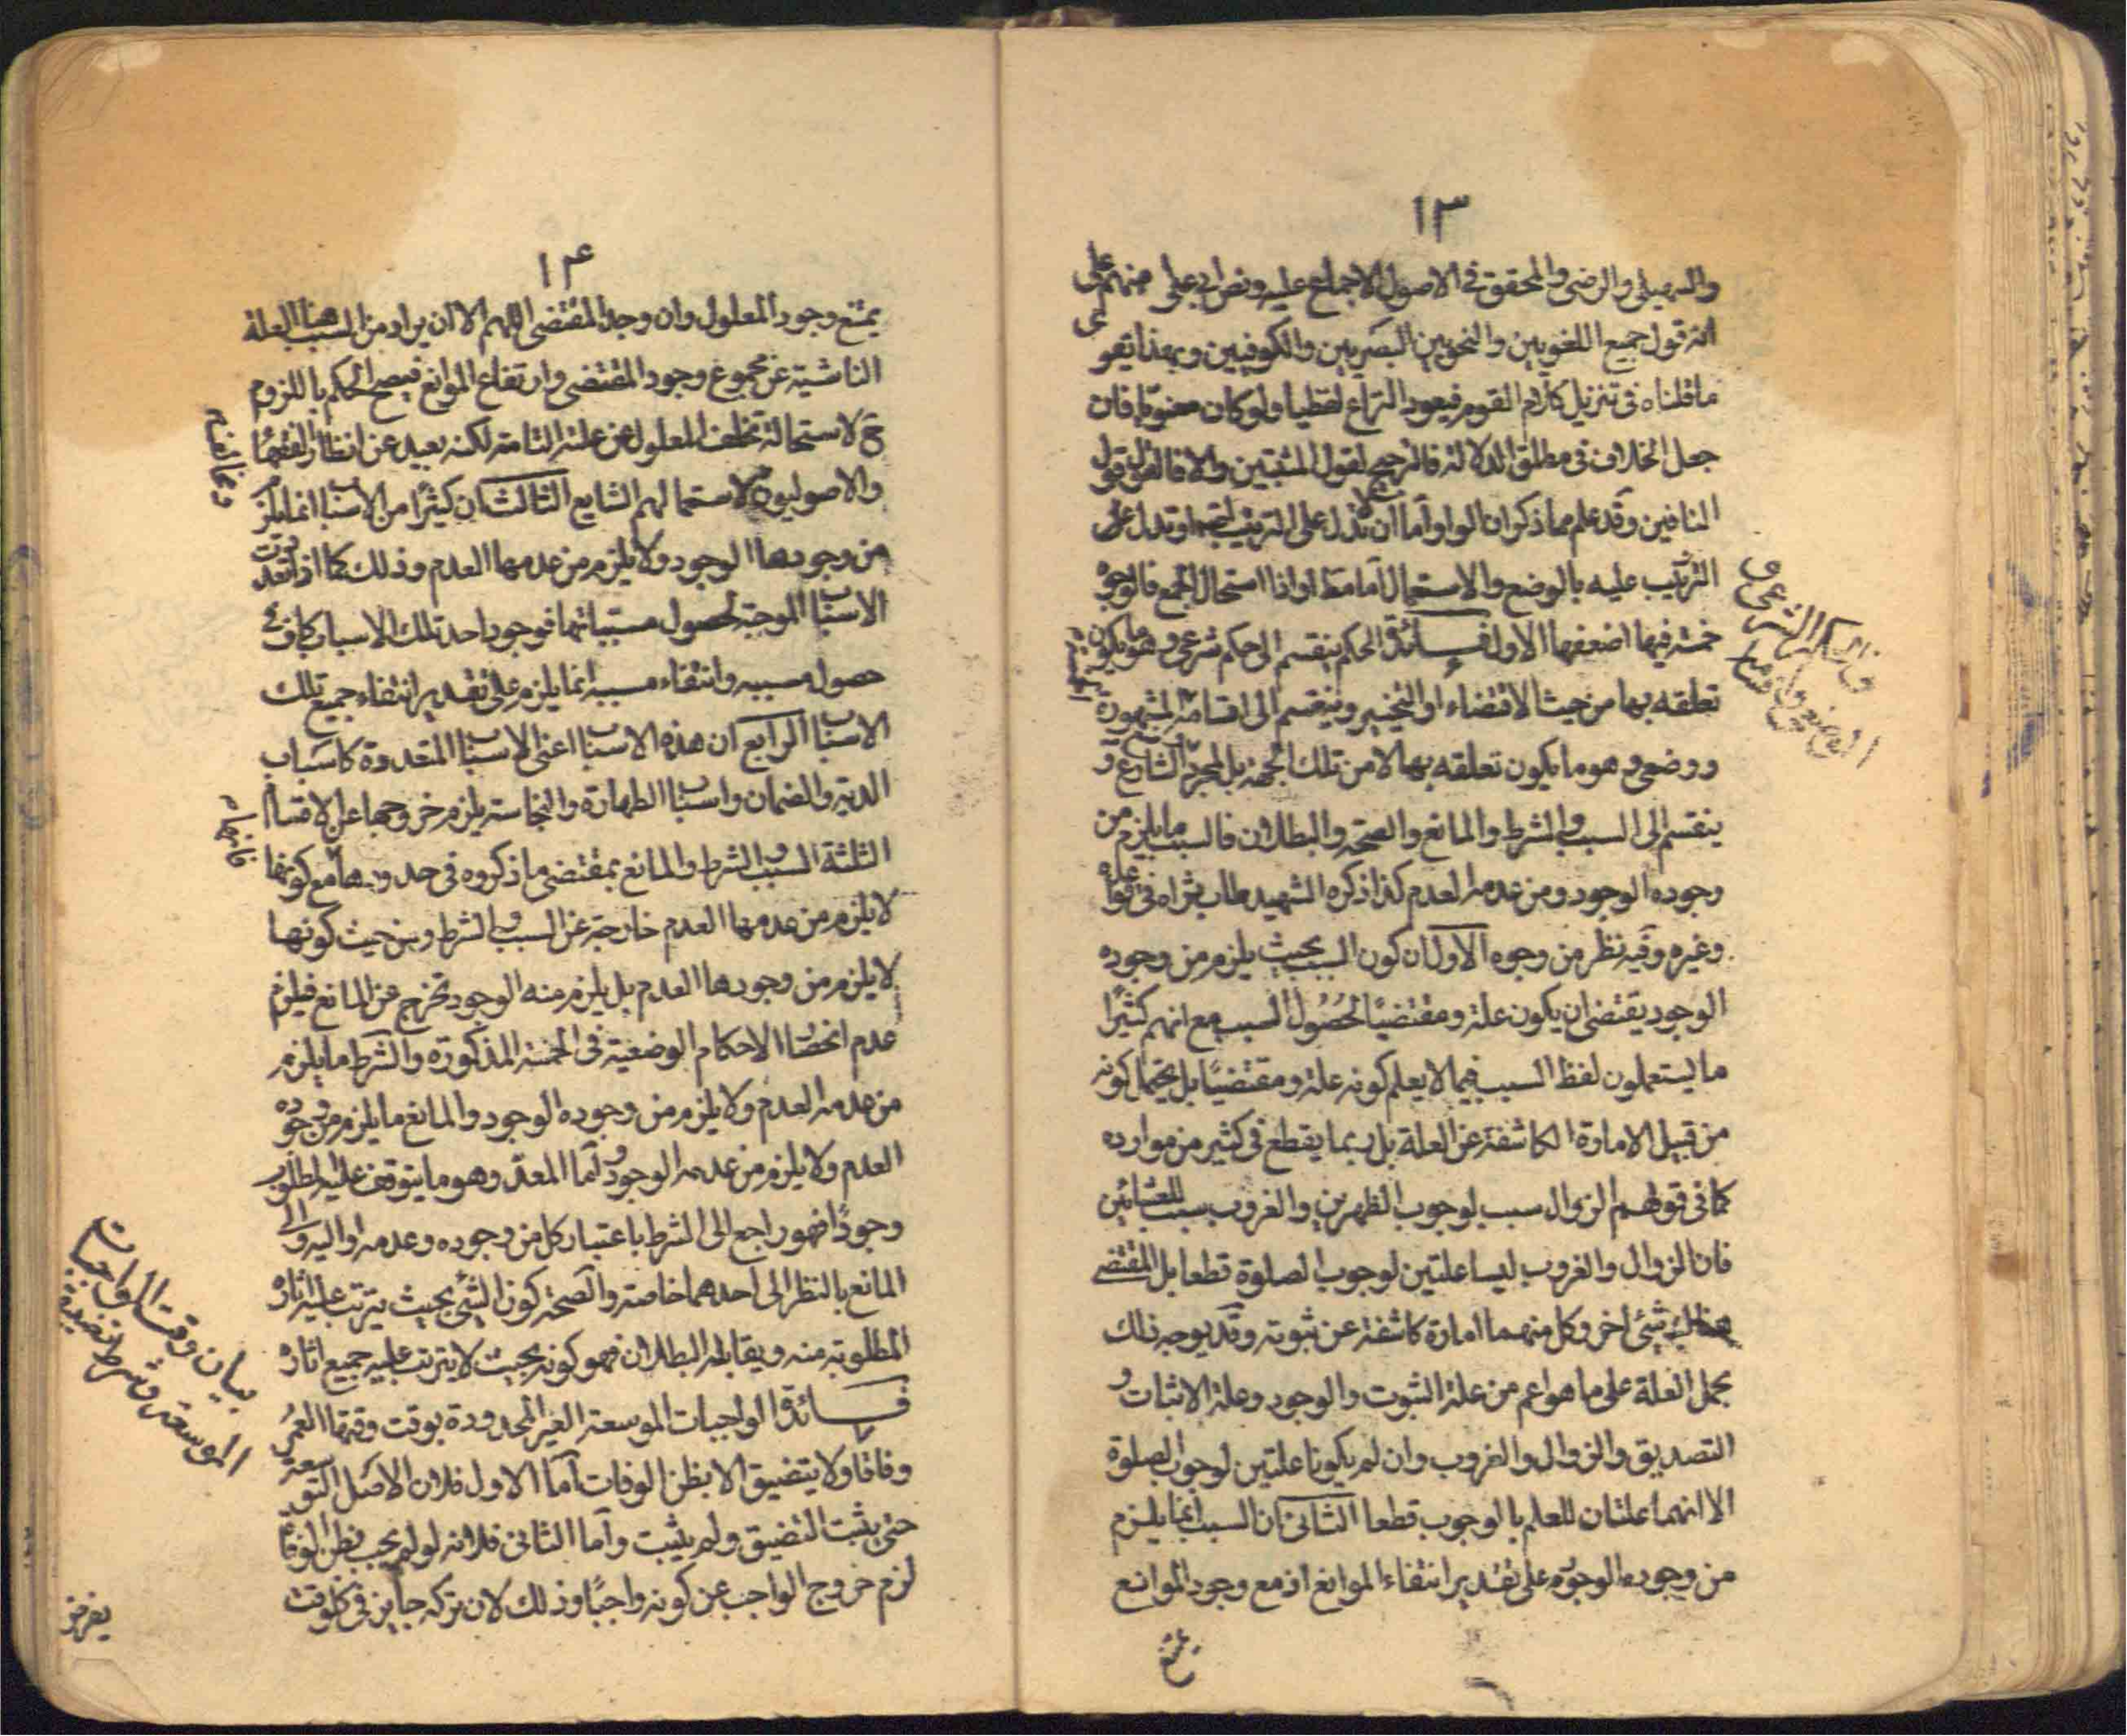 ١٣
والسهيلي والرضي والمحقق في الاصول الاجماع عليه ونص ابو علي منهم على
انه قول جميع اللغويين والنحويين البصريين والكوفيين وبهذا يقوى
ما قلناه في تنزيل كلام القوم فيعود النزاع لفظيا ولو كان معنويا فان
جعل الخلاف في مطلق الدلالة فالترجيح لقول المثبتين والا فالقول قول
النافين وقد علم مما ذكر ان الواو اما ان تدل على الترتيب او تدل على
الترتيب عليه بالوضع والاستعمال اما مط او اذا استحال الجمع فالوجوه
خمسة فيها اضعفها الاول فائدة الحكم ينقسم الى حكم شرعي وهو ما يكون
تعلقه بها من حيث الاقتضاء او التخيير وينقسم الى اقسامه المشهورة
ووضعي وهو ما يكون تعلقه بها لا من تلك الجهة بل لمجرد الشارع و
ينقسم الى السبب والشرط والمانع والصحة والبطلان فالسبب ما يلزم من
وجوده الوجود ومن عدمه العدم كذا ذكره الشهيد طاب ثراه في قواعده
وغيره وفيه نظر من وجوه الاول ان كون السبب بحيث يلزم من وجوده
الوجود يقتضي ان يكون علة ومقتضيًا لحصول المسبب مع انهم كثيرًا
ما يستعملون لفظ السبب فيما لا يعلم كونه علة ومقتضيًا بل يحتمل كونه
من قبيل الامارة الكاشفة عن العلة بل ربما يقطع في كثير من موارده
كما في قولهم الزوال سبب لوجوب الظهرين والغروب سبب للعشائين
فان الزوال والغروب ليسا علتين لوجوب الصلوة قطعا بل المقتضي
هنالك شئ اخر وكل منهما امارة كاشفة عن ثبوته وقد يوجه ذلك
بحمل العلة على ما هو اعم من علة الثبوت والوجود وعلة الاثبات و
التصديق والزوال والغروب وان لم يكونا علتين لوجوب الصلوة
الا انهما علتان للعلم بالوجوب قطعا الثاني ان السبب انما يلزم
من وجوده الوجود على تقدير انتفاء الموانع اذ مع وجود الموانع
يمتنع
في الحكم الشرعي و
الوضعي واقسامه
١٤
يمتنع وجود المعلول وان وجد المقتضي اللهم الا ان يراد من السبب هنا العلة
الناشية عن مجموع وجود المقتضي وارتفاع الموانع فيصح الحكم باللزوم
ح لاستحالة تخلف المعلول عن علته التامة لكنه بعيد عن انظار الفقهاء
والاصوليون لاستعمالهم الشايع الثالث ان كثيرًا من الاسباب انما يلزم
من وجودها الوجود ولا يلزم من عدمها العدم وذلك كما اذا تعددت
الاسباب الموجبة لحصول مسبباتها فوجود احد تلك الاسباب كاف في
حصول مسببه وانتفاء مسببه انما يلزم على تقدير انتفاء جميع تلك
الاسباب الرابع ان هذه الاسباب اعني الاسباب المتعددة كاسباب
الدية والضمان واسباب الطهارة والنجاسة يلزم خروجها عن الاقسام
الثلثة السبب والشرط والمانع بمقتضى ما ذكروه في حدودها مع كونها
لا يلزم من عدمها العدم خارجة عن السبب والشرط ومن حيث كونها
لا يلزم من وجودها العدم بل يلزم منه الوجود تخرج عن المانع فيلزم
عدم انحصار الاحكام الوضعية في الخمسة المذكورة والشرط ما يلزم
من عدمه العدم ولا يلزم من وجوده الوجود والمانع ما يلزم من وجوده
العدم ولا يلزم من عدمه الوجود واما المعد وهو ما يتوقف عليه المطلوب
وجودًا فهو راجع الى الشرط باعتبار كل من وجوده وعدمه او اليه والى
المانع بالنظر الى احدهما خاصة والصحة كون الشئ بحيث يترتب عليه اثاره
المطلوبة منه ويقابله البطلان فهو كونه بحيث لا يترتب عليه جميع اثاره
فائدة الواجبات الموسعة الغير المحدودة بوقت وقتها العمر
وفاقا ولا يتضيق الا بظن الوفات اما الاول فلان الاصل التوسعة
حتى يثبت التضيق ولم يثبت واما الثاني فلانه لو لم يجب بظن الوفات
لزم خروج الواجب عن كونه واجبًا وذلك لان تركه جايز في كل وقت
بيان وقت الواجبات
الموسعة وشرط تضييقه
يفرض